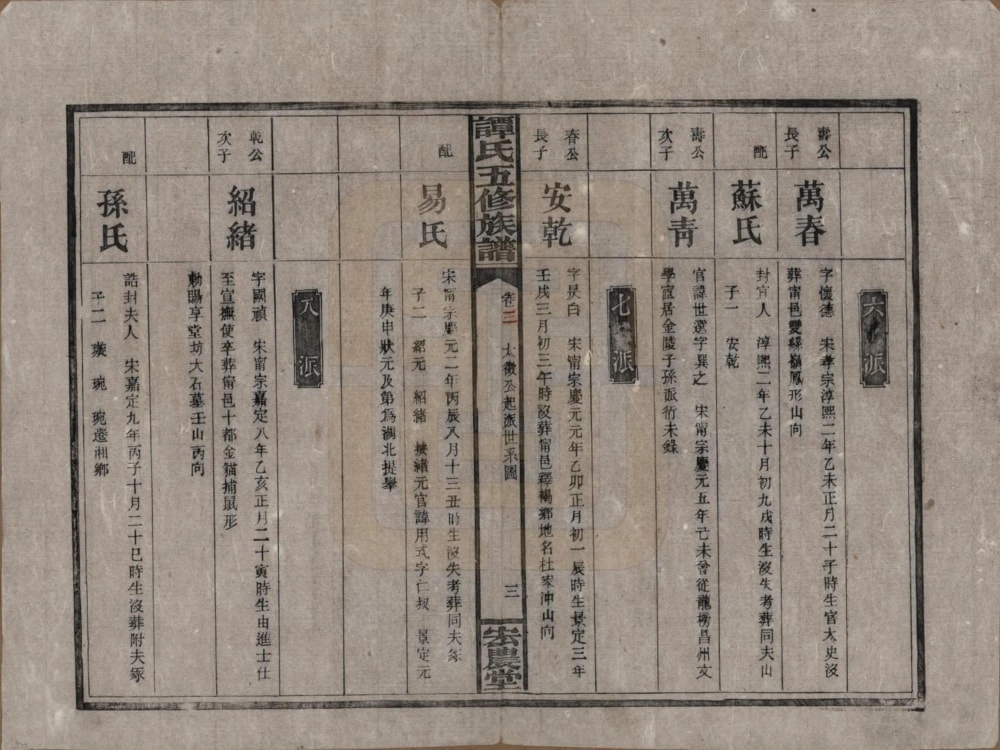 六派
壽公
長子
萬春
字懷德 宋孝宗淳熙二年乙未正月二十子時生官太史沒
葬甯邑雙
嶺鳳形山向
配
蘇氏
封宜人 淳熙二年乙未十月初九戌時生沒失考葬同夫山
子一 安乾
壽公
次子
萬青
官諱世選字巽之 宋甯宗慶元五年己未曾從龍榜昌州文
學宦居金陵子孫派衍未錄
七派
春公
長子
安乾
字長白 宋甯宗慶元元年乙卯正月初一辰時生景定三年
壬戌三月初三午時沒葬甯邑釋褐鄉地名杜家沖山向
配
易氏
宋甯宗慶元二年丙辰八月十三丑時生沒失考葬同夫冢
子二 紹元 紹緒 按緒元官諱用式字仁叔 景定元
年庚申狀元及第爲湖北提舉
譚氏五修族譜
卷三 太徵公起派世系圖
三
宏農堂
八派
乾公
次子
紹緒
字國禎 宋甯宗嘉定八年乙亥正月二十寅時生由進士仕
至宣撫使卒葬甯邑十都金貓捕鼠形
勅賜享堂坊大石墓壬山丙向
配
孫氏
誥封夫人 宋嘉定九年丙子十月二十巳時生沒葬附夫冢
子二 琬 琬遷湘鄉